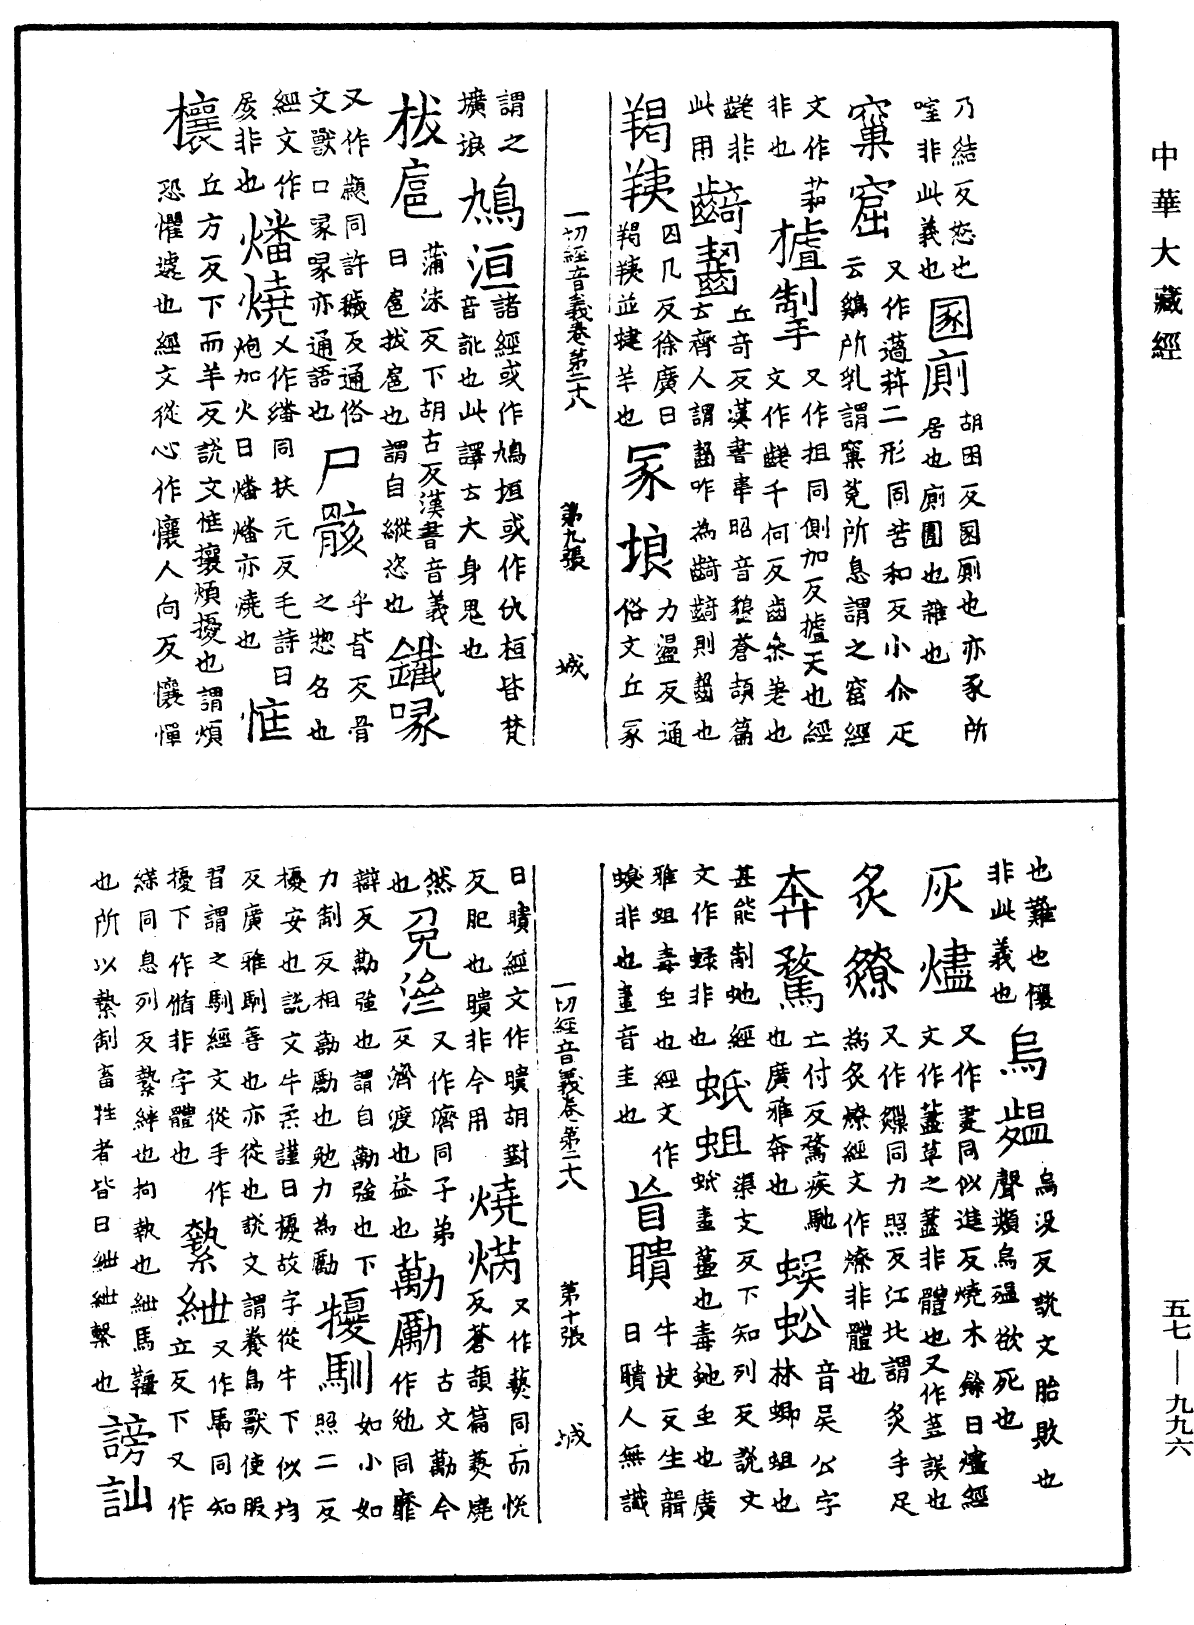 中華大藏經
乃結反悐也
啌非此義也 圂廁 胡困反圂廁也亦豕所
居也廁圊也雜也
窠窟 又作薖䔾二形同苦和反小尒疋
云鷄所乳謂窠兔所息謂之窟經
文作
非也 摣掣 又作抯同側加反摣天也經
手文作齹千何反齒叅差也
齹非
此用 齮齧 丘奇反漢書韋昭音墾蒼頡篇
云齊人謂齧咋為齮齮則齧也
羯羠 囚几反徐廣曰
羯羠並揵羊也 冢埌 力盪反通
俗文丘冢
一切經音義卷第二十八 第九張 城
謂之
壙埌 鳩洹 諸經或作鳩垣或作仇桓皆梵
音訛也此譯云大身鬼也
拔扈 蒲沫反下胡古反漢書音義
曰扈拔扈也謂自縱恣也 鐵喙
又作顪同許穢反通俗
文獸口喙喙亦通語也 尸骸 乎皆反骨
之惣名也
經文作
㞕非也 燔燒 又作繙同扶元反毛詩曰
炮加火曰燔燔亦燒也 恇
攘 丘方反下而羊反說文恇攘煩擾也謂煩
恐懼遽也經文從心作懹人向反懹憚
也難也懹
非此義也 烏殟 烏沒反說文胎敗也
聲類烏殟欲死也
灰燼 又作㶳同似進反燒木餘曰燼經
文作藎草之藎非體也又作荩誤也
炙燎 又作爒同力照反江北謂炙手足
為炙燎經文作燎非體也
奔騖 亡付反騖疾馳
也廣雅奔也 蜈蚣 音吴公字
林蝍蛆也
甚能制虵經
文作蝾非也 蚔蛆 渠支反下知列反說文
蚔畫蠆也毒虵虫也廣
雅蛆毒虫也經文作
蜧非也畫音圭也 眚聵 牛快反生聾
曰聵人無識
一切經音義卷第二十八 第十張 城
曰聵經文作聵胡對
反肥也聵非今用 燒焫 又作爇同而悅
反蒼頡篇爇燒
然
也 免濟 又作㴉同子弟
反濟渡也益也 勸勵 古文勸今
作勉同靡
辯反勸強也謂自勸強也下
力制反相勸勵也勉力為勵 擾馴 如小如
照二反
擾安也說文牛柔謹曰擾故字從牛下似均
反廣雅馴善也亦從也說文謂養鳥獸使服
習謂之馴經文從手作
擾下作脩非字體也 縶紲 又作馽同知
立反下又作
緤同息列反縶絆也拘執也紲馬韁
也所以縶制畜牲者皆曰紲紲繫也 謗訕
五七—九九六